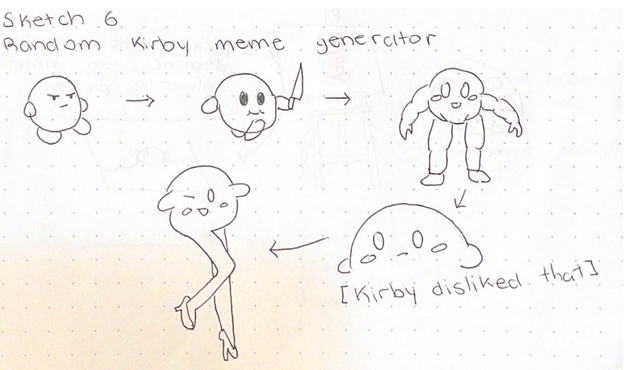 Sketch 6
Random Kirby meme generator
[Kirby disliked that]